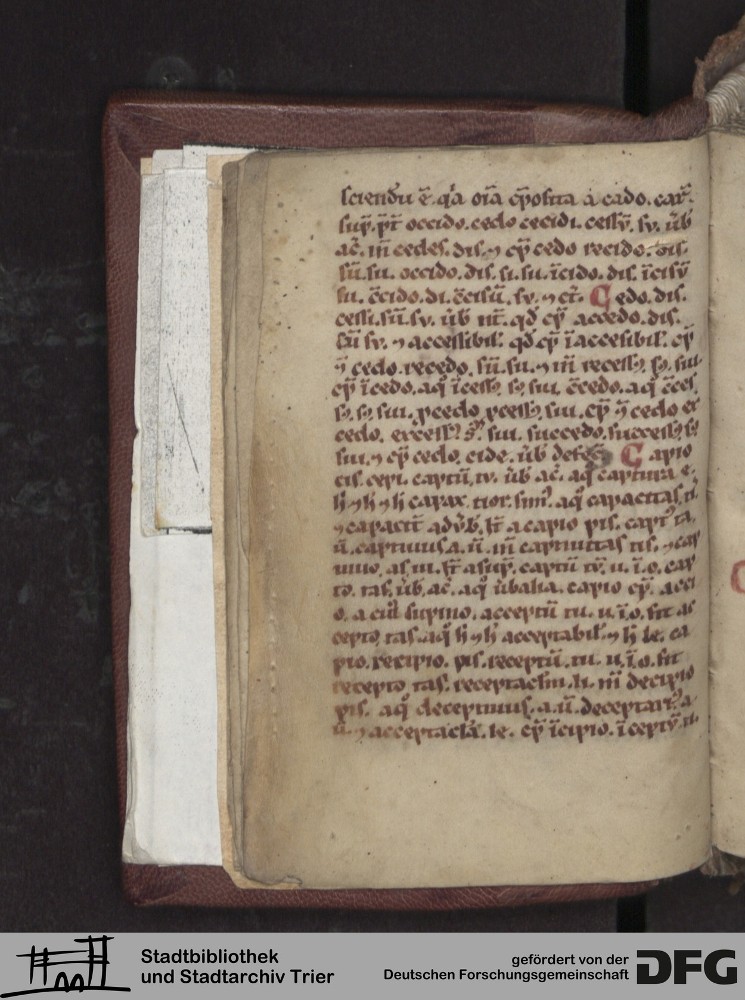 sciendũ ẽ. qͥa oĩa cp̃osita a cado. car̃.
sup̃. pt̃ occido. cedo cecidi. cessũ. sv. ũb̃
ac̃. m̃ cedes. dis. ⁊ cp̃ cedo recido. dis.
sũ. su. occido. dis. si. su. ĩcido. dis. ĩcisũ
su. c̃cido. di. c̃cisũ. sv. ⁊ ct̃. Cedo. dis.
cessi. sũ. sv. ũb̃ nt̃. qd̃ cp̃ accedo. dis.
sũ sv. ⁊ accessibil'. qd̃ cp̃ ĩaccesibil'. cp̃
⁊ cedo. recedo. sũ. su. ⁊ m̃ recessꝰ. sꝰ. sui
cp̃ ĩcedo. aq̃ ĩcessꝰ. sꝰ. sui. c̃cedo. aq̃ c̃ces
sꝰ. sꝰ. sui. ꝓcedo ꝓcessꝰ. sui. cp̃ ⁊ cedo ex
cedo. excessꝰ. sꝰ. sui. succedo. successꝰ. sꝰ
sui. ⁊ cp̃ cedo. cide. ũb̃ Capio
cis. cepi. captũ. tv. ũb̃ ac̃. aq̃ captura e.
h̃ ⁊ h̃ ⁊ h̃ capax. tior. simꝰ. aq̃ capacitas. ti.
⁊ capacit̃ adũb̃. st̃ a capio pis. captꝰ ta.
ũ. captiuus. a. ũ. m̃ captiuitas tis. ⁊ cap
tiuo. as. ui. st̃ a sup̃. captũ tṽ. u. ĩ. o. cap
to. tas. ũb̃. ac̃. aq̃ ũbalia. capio cp̃. acci
o. a cui supino. acceptũ tu. u. ĩ. o. fit ac
cepto. tas. aq̃ h̃ ⁊ h̃ acceptabil'. ⁊ h̃ le. ca
pio. recipio. pis. receptũ. tu. u. ĩ. o. fit
recepto. tas. receptaclm̃. li. m̃ decipio
pis. aq̃ deceptiuus. a. ũ. deceptariꝰ. a.
ũ. ⁊ acceptaclm̃. le. cp̃ ĩcipio. ĩceptũ. tu.
Stadtbibliothek
und Stadtarchiv Trier
gefördert von der
Deutschen Forschungsgemeinschaft
DFG